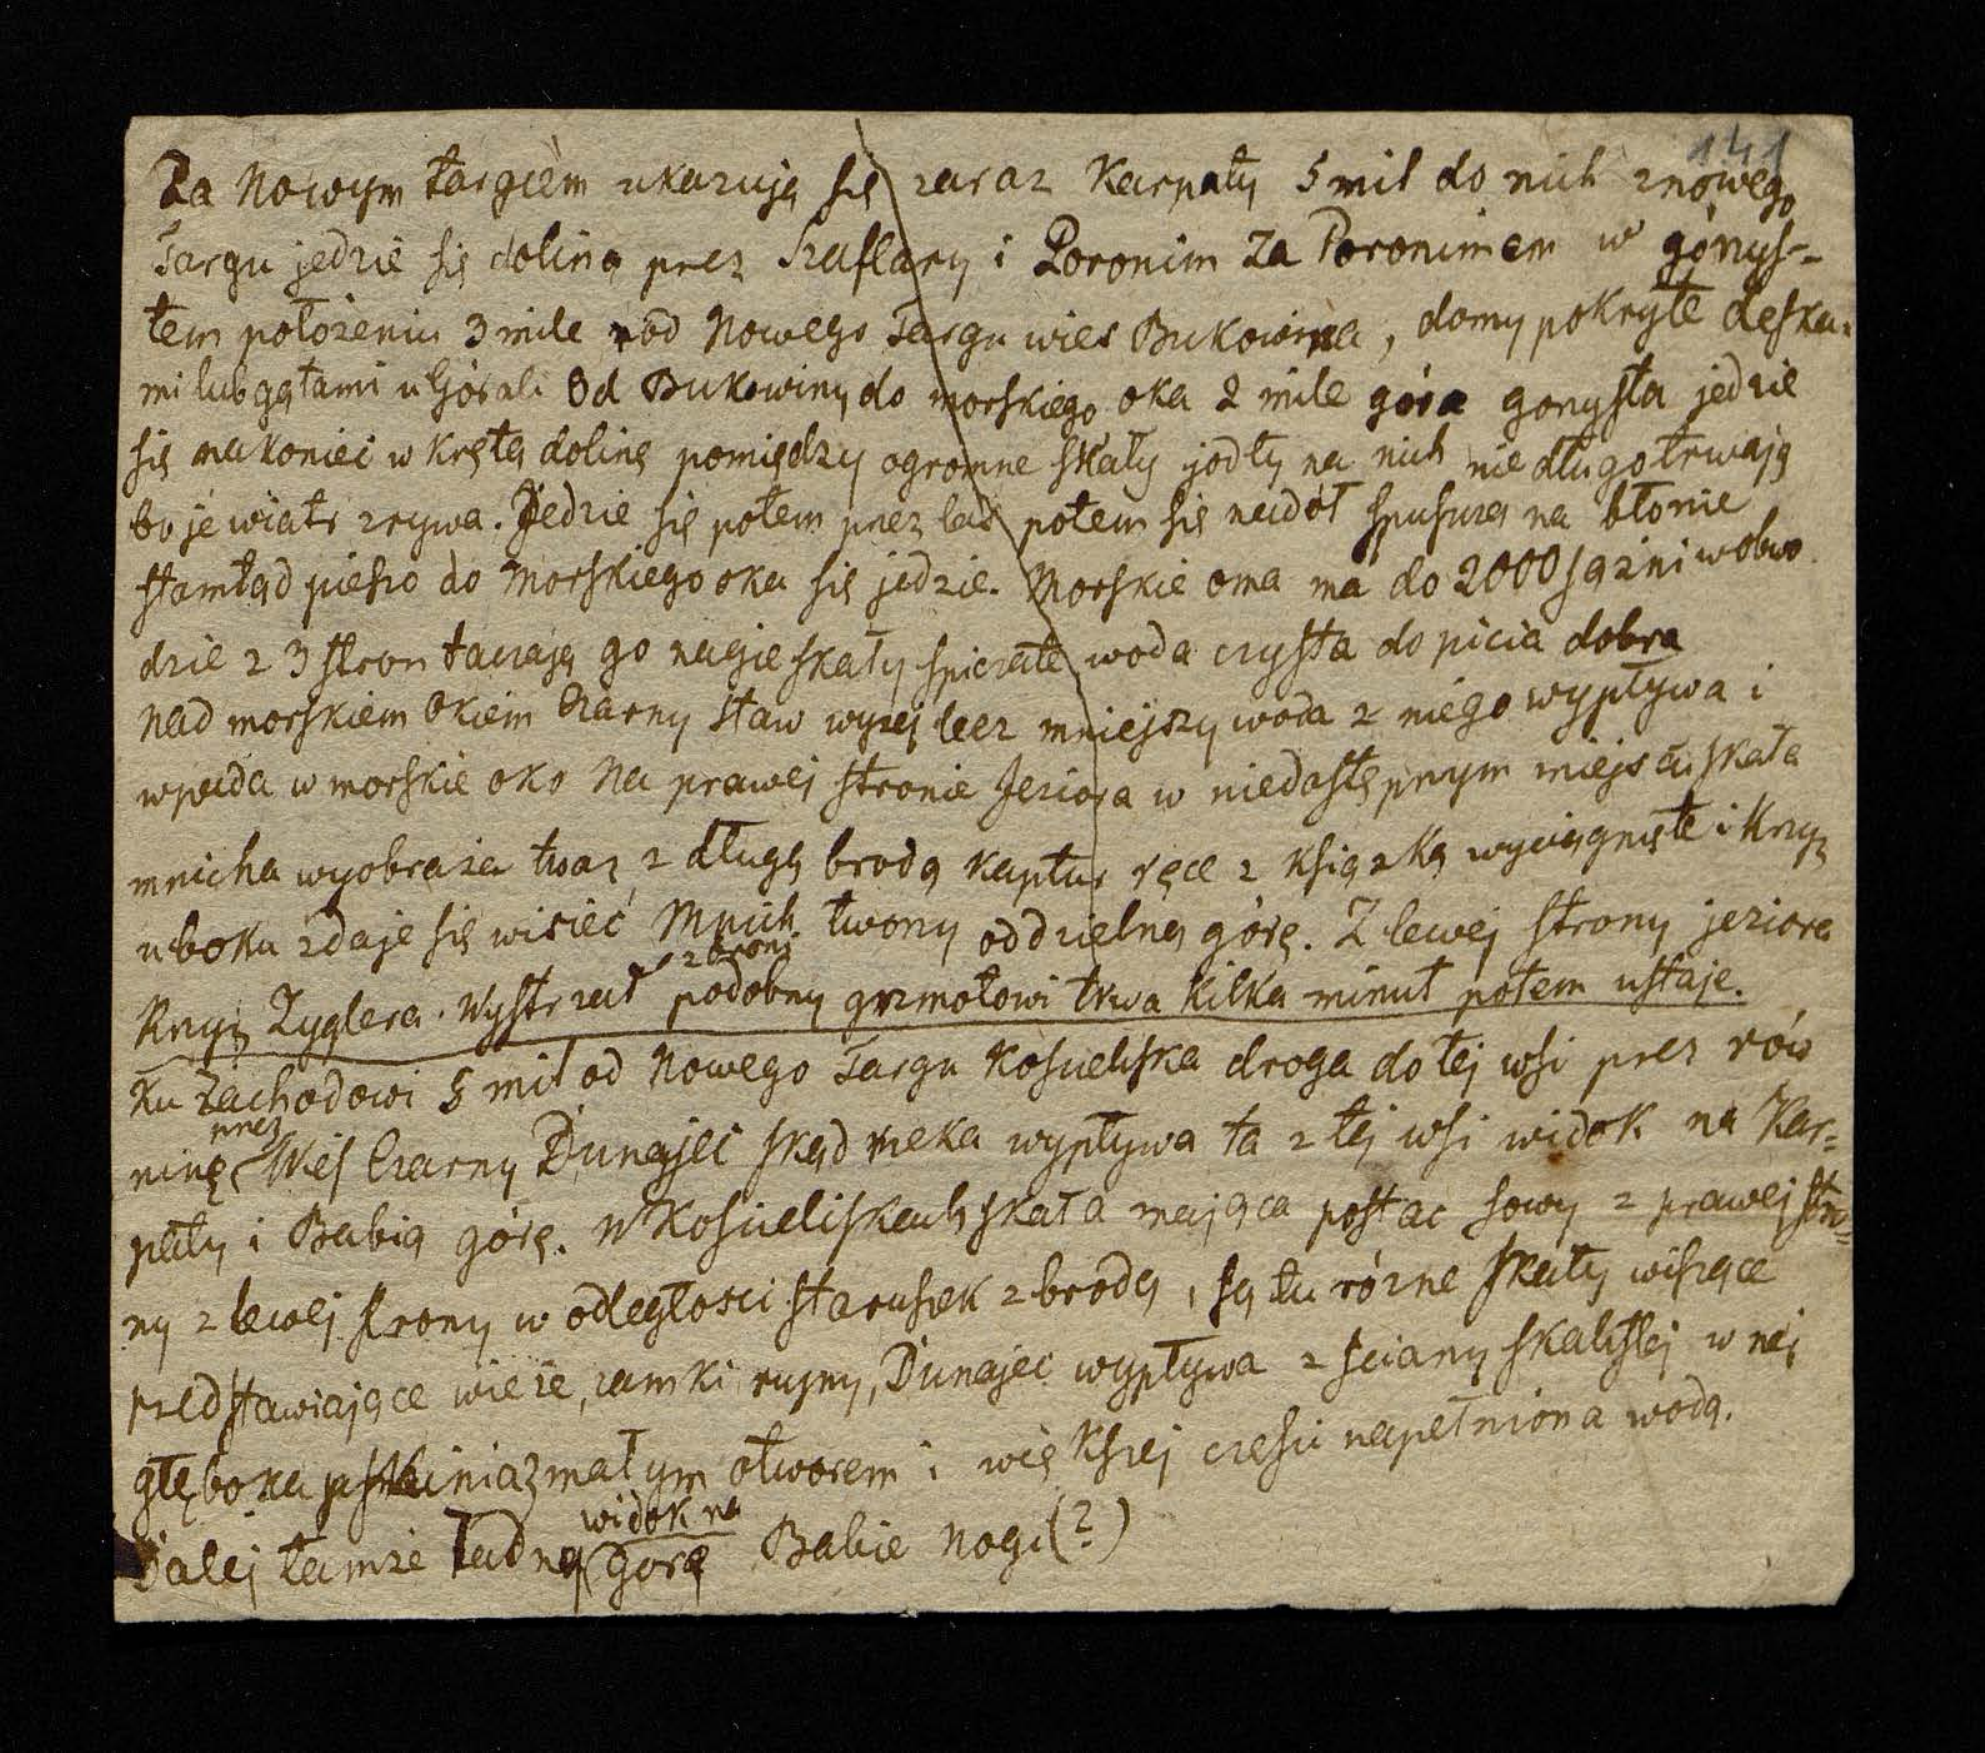 141
Za Nowym targiem ukazują się zaraz Karpaty 5 mil do nich z nowego
Targu jedzie się doliną przez Szaflary i Poronim Za Poronimem w górzys-
tem położeniu 3 mile od Nowego Targu wieś Bukowina, domy pokryte deska=
mi lub gątami u Górali Od Bukowiny do morskiego oka 2 mile góra gorzysta jedzie
się nakoniec w krętą dolinę pomiędzy ogromne skały jodły na nich nie długo trwają
bo je wiatr zrywa. Jedzie się potem przez las potem się nadół spuszcza na błonie
stamtąd pieszo do Morskiego oka się jedzie. Morskie oma ma do 2000 sążni w obwo
dzie z 3 stron taczają go nagie skały spiczate woda czysta do picia dobra
Nad morskiem Okiem Czarny Staw wyzej lecz mniejszy woda z niego wypływa i
wpada w morskie oko Na prawej stronie Jeziora w niedostępnym miejscu skała
mnicha wyobraża twarz z długą brodą kaptur ręce z książką wyciągnięte i krzyż
u boku zdaje się wisieć Mnich tworzy oddzielną górę. Z lewej strony jeziora
Krzyż Zyglera. Wystrzał z broni podobny grzmotowi trwa kilka minut potem ustaje.
Ku Zachodowi 5 mil od Nowego Targu Kościeliska droga do tej wsi przez rów
ninę przez Wieś Czarny Dunajec skąd rzeka wypływa ta z tej wsi widok na Kar=
paty i Babią górę. W Kościeliskach skała mająca postac sowy z prawej stro=
ny z lewej strony w odległosci staruszek z brodą, są tu rózne skały wiszące
przedstawiające wieże, zamki rujny, Dunajec wypływa z sciany skalistej w nej
głęboka jaskinia z małym otworem i większej częsci napełniona wodą.
Dalej tamże ładny widok na gorę Babie nogi (?)